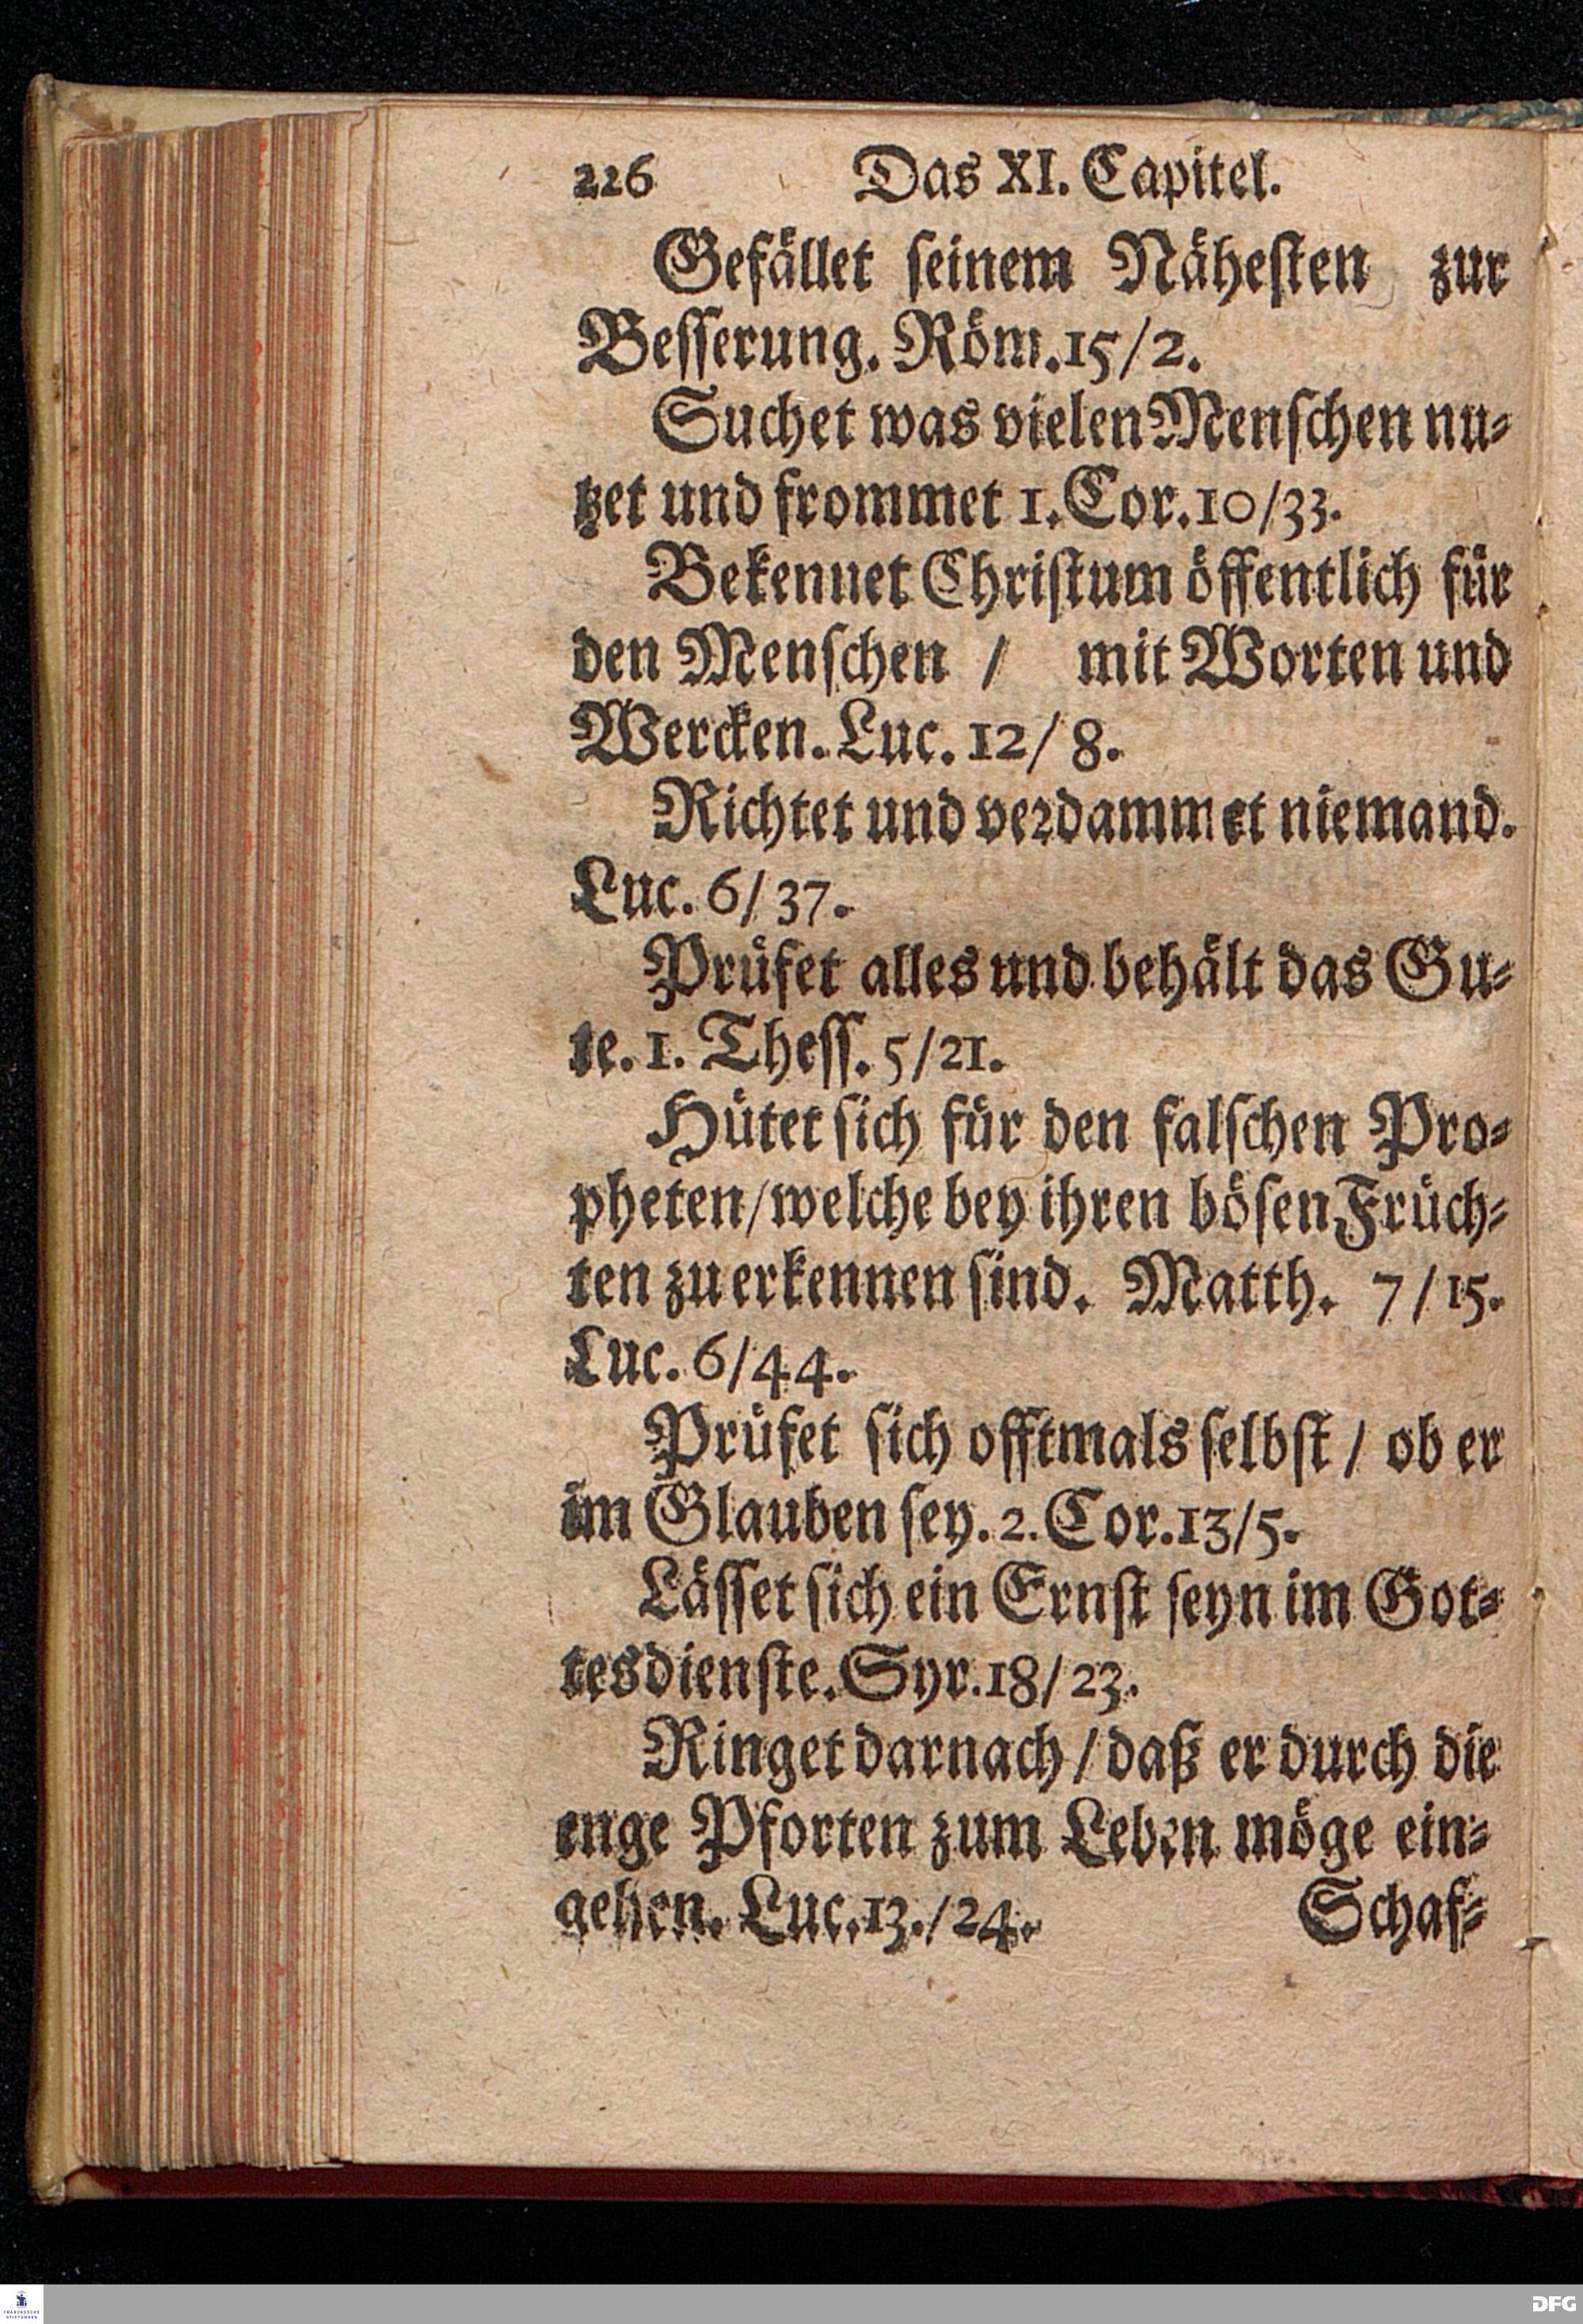 226 Das XI. Capitel.
Gefället seinem Nähesten zur
Besserung. Röm. 15/2.
Suchet was vielen Menschen nu-
tzet und frommet 1. Cor. 10/33.
Bekennet Christum öffentlich für
den Menschen / mit Worten und
Wercken. Luc. 12/ 8.
Richtet und verdammet niemand.
Luc. 6/ 37.
Prüfet alles und behält das Gu-
te. 1. Thess. 5/21.
Hütet sich für den falschen Pro-
pheten/welche bey ihren bösen Früch-
ten zu erkennen sind. Matth. 7/15.
Luc. 6/44.
Prüfet sich offtmals selbst / ob er
im Glauben sey. 2. Cor. 13/5.
Lässet sich ein Ernst seyn im Got-
tesdienste. Syr. 18/23.
Ringet darnach / daß er durch die
enge Pforten zum Leben möge ein-
gehen. Luc. 13./24. Schaf-
FRANCKESCHE
STIFTUNGEN
DFG